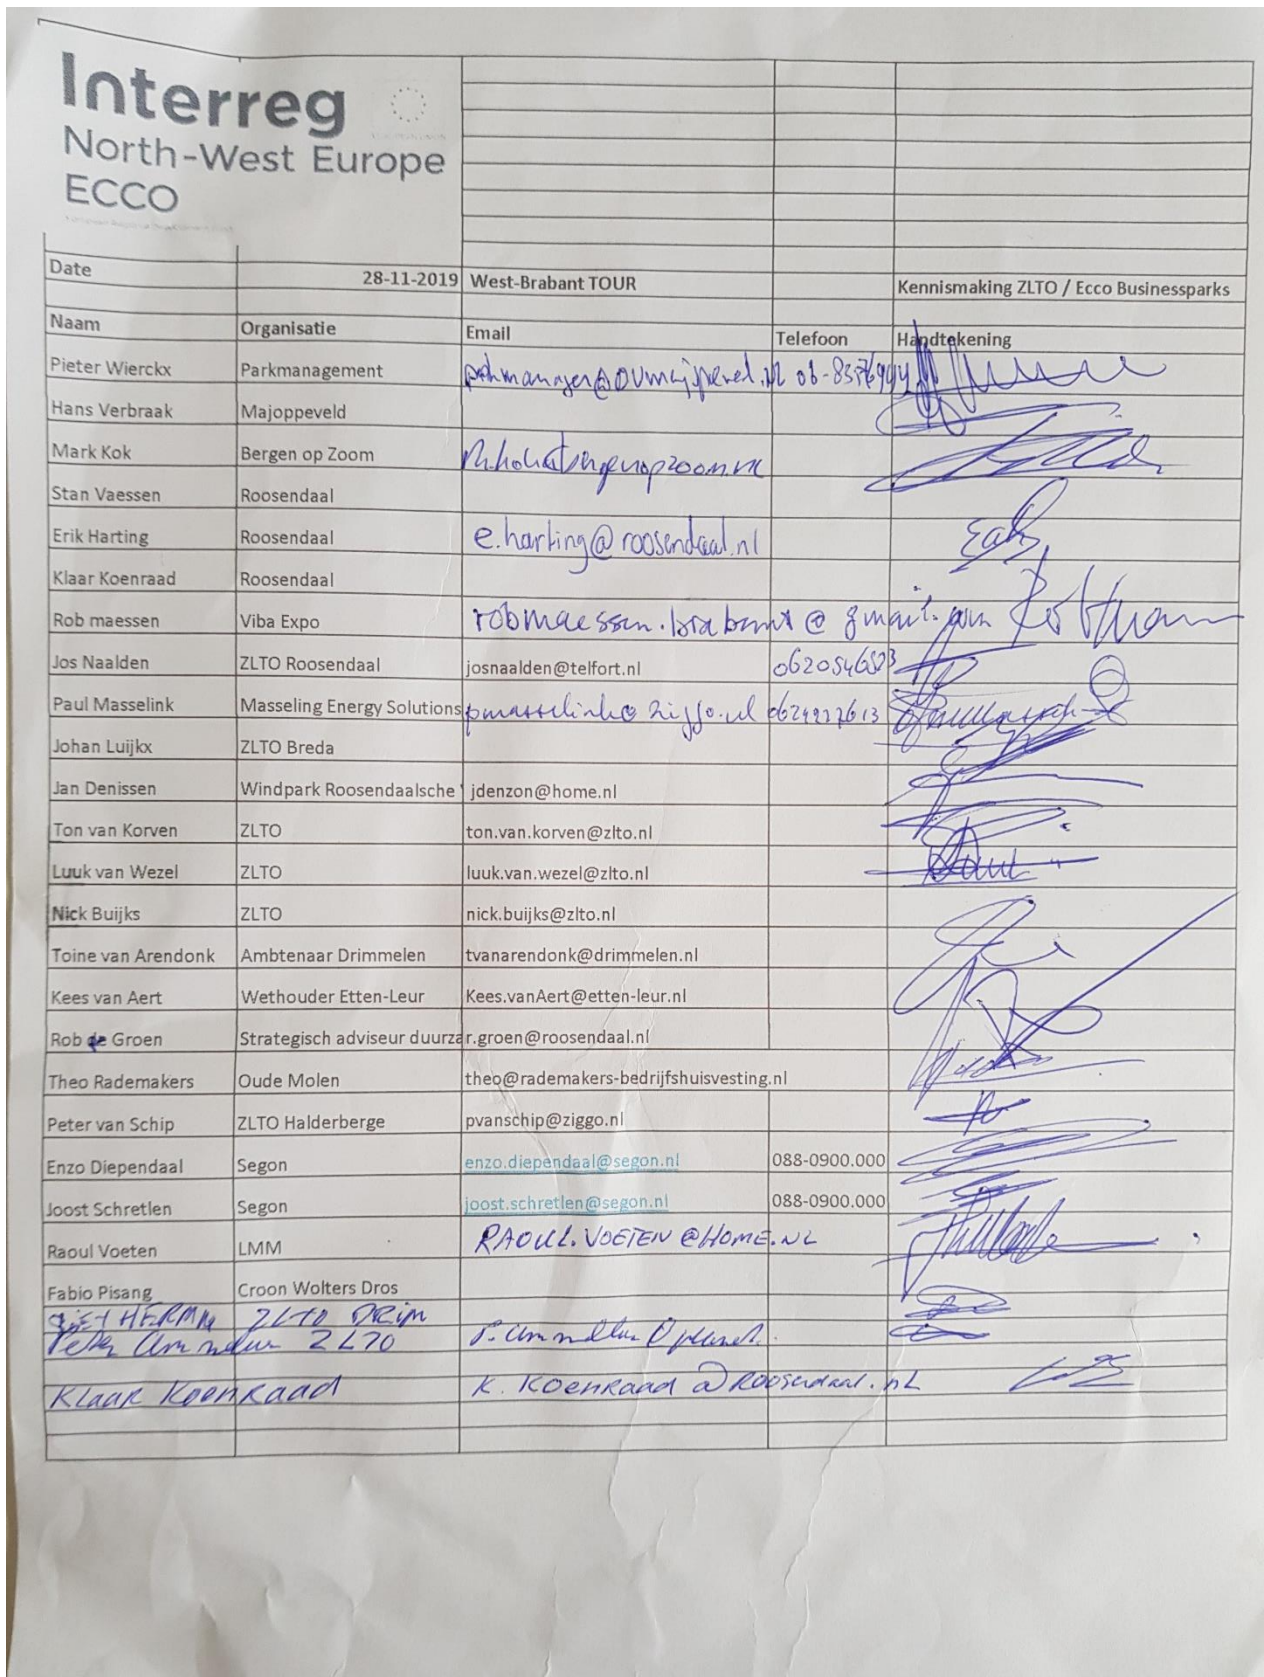 Interreg
North-West Europe
ECCO
Date 28-11-2019 West-Brabant TOUR Kennismaking ZLTO / Ecco Businessparks
Naam Organisatie Email Telefoon Handtekening
Pieter Wierckx Parkmanagement
Hans Verbraak Majoppeveld
Mark Kok Bergen op Zoom
Stan Vaessen Roosendaal
Erik Harting Roosendaal e.harting@roosendaal.nl
Klaar Koenraad Roosendaal
Rob maessen Viba Expo robmaessen.brabant@gmail.com
Jos Naalden ZLTO Roosendaal josnaalden@telfort.nl
Paul Masselink Masseling Energy Solutions pmasselink@ziggo.nl 0624927613
Johan Luijkx ZLTO Breda
Jan Denissen Windpark Roosendaalsche jdenzon@home.nl
Ton van Korven ZLTO ton.van.korven@zlto.nl
Luuk van Wezel ZLTO luuk.van.wezel@zlto.nl
Nick Buijks ZLTO nick.buijks@zlto.nl
Toine van Arendonk Ambtenaar Drimmelen tvanarendonk@drimmelen.nl
Kees van Aert Wethouder Etten-Leur Kees.vanAert@etten-leur.nl
Rob de Groen Strategisch adviseur duurza r.groen@roosendaal.nl
Theo Rademakers Oude Molen theo@rademakers-bedrijfshuisvesting.nl
Peter van Schip ZLTO Halderberge pvanschip@ziggo.nl
Enzo Diependaal Segon enzo.diependaal@segon.nl 088-0900.000
Joost Schretlen Segon joost.schretlen@segon.nl 088-0900.000
Raoul Voeten LMM RAOUL.VOETEN@HOME.NL
Fabio Pisang Croon Wolters Dros
ZLTO DRIM
Peter ZLTO
Klaar Koenraad K.Koenraad@Roosendaal.nL